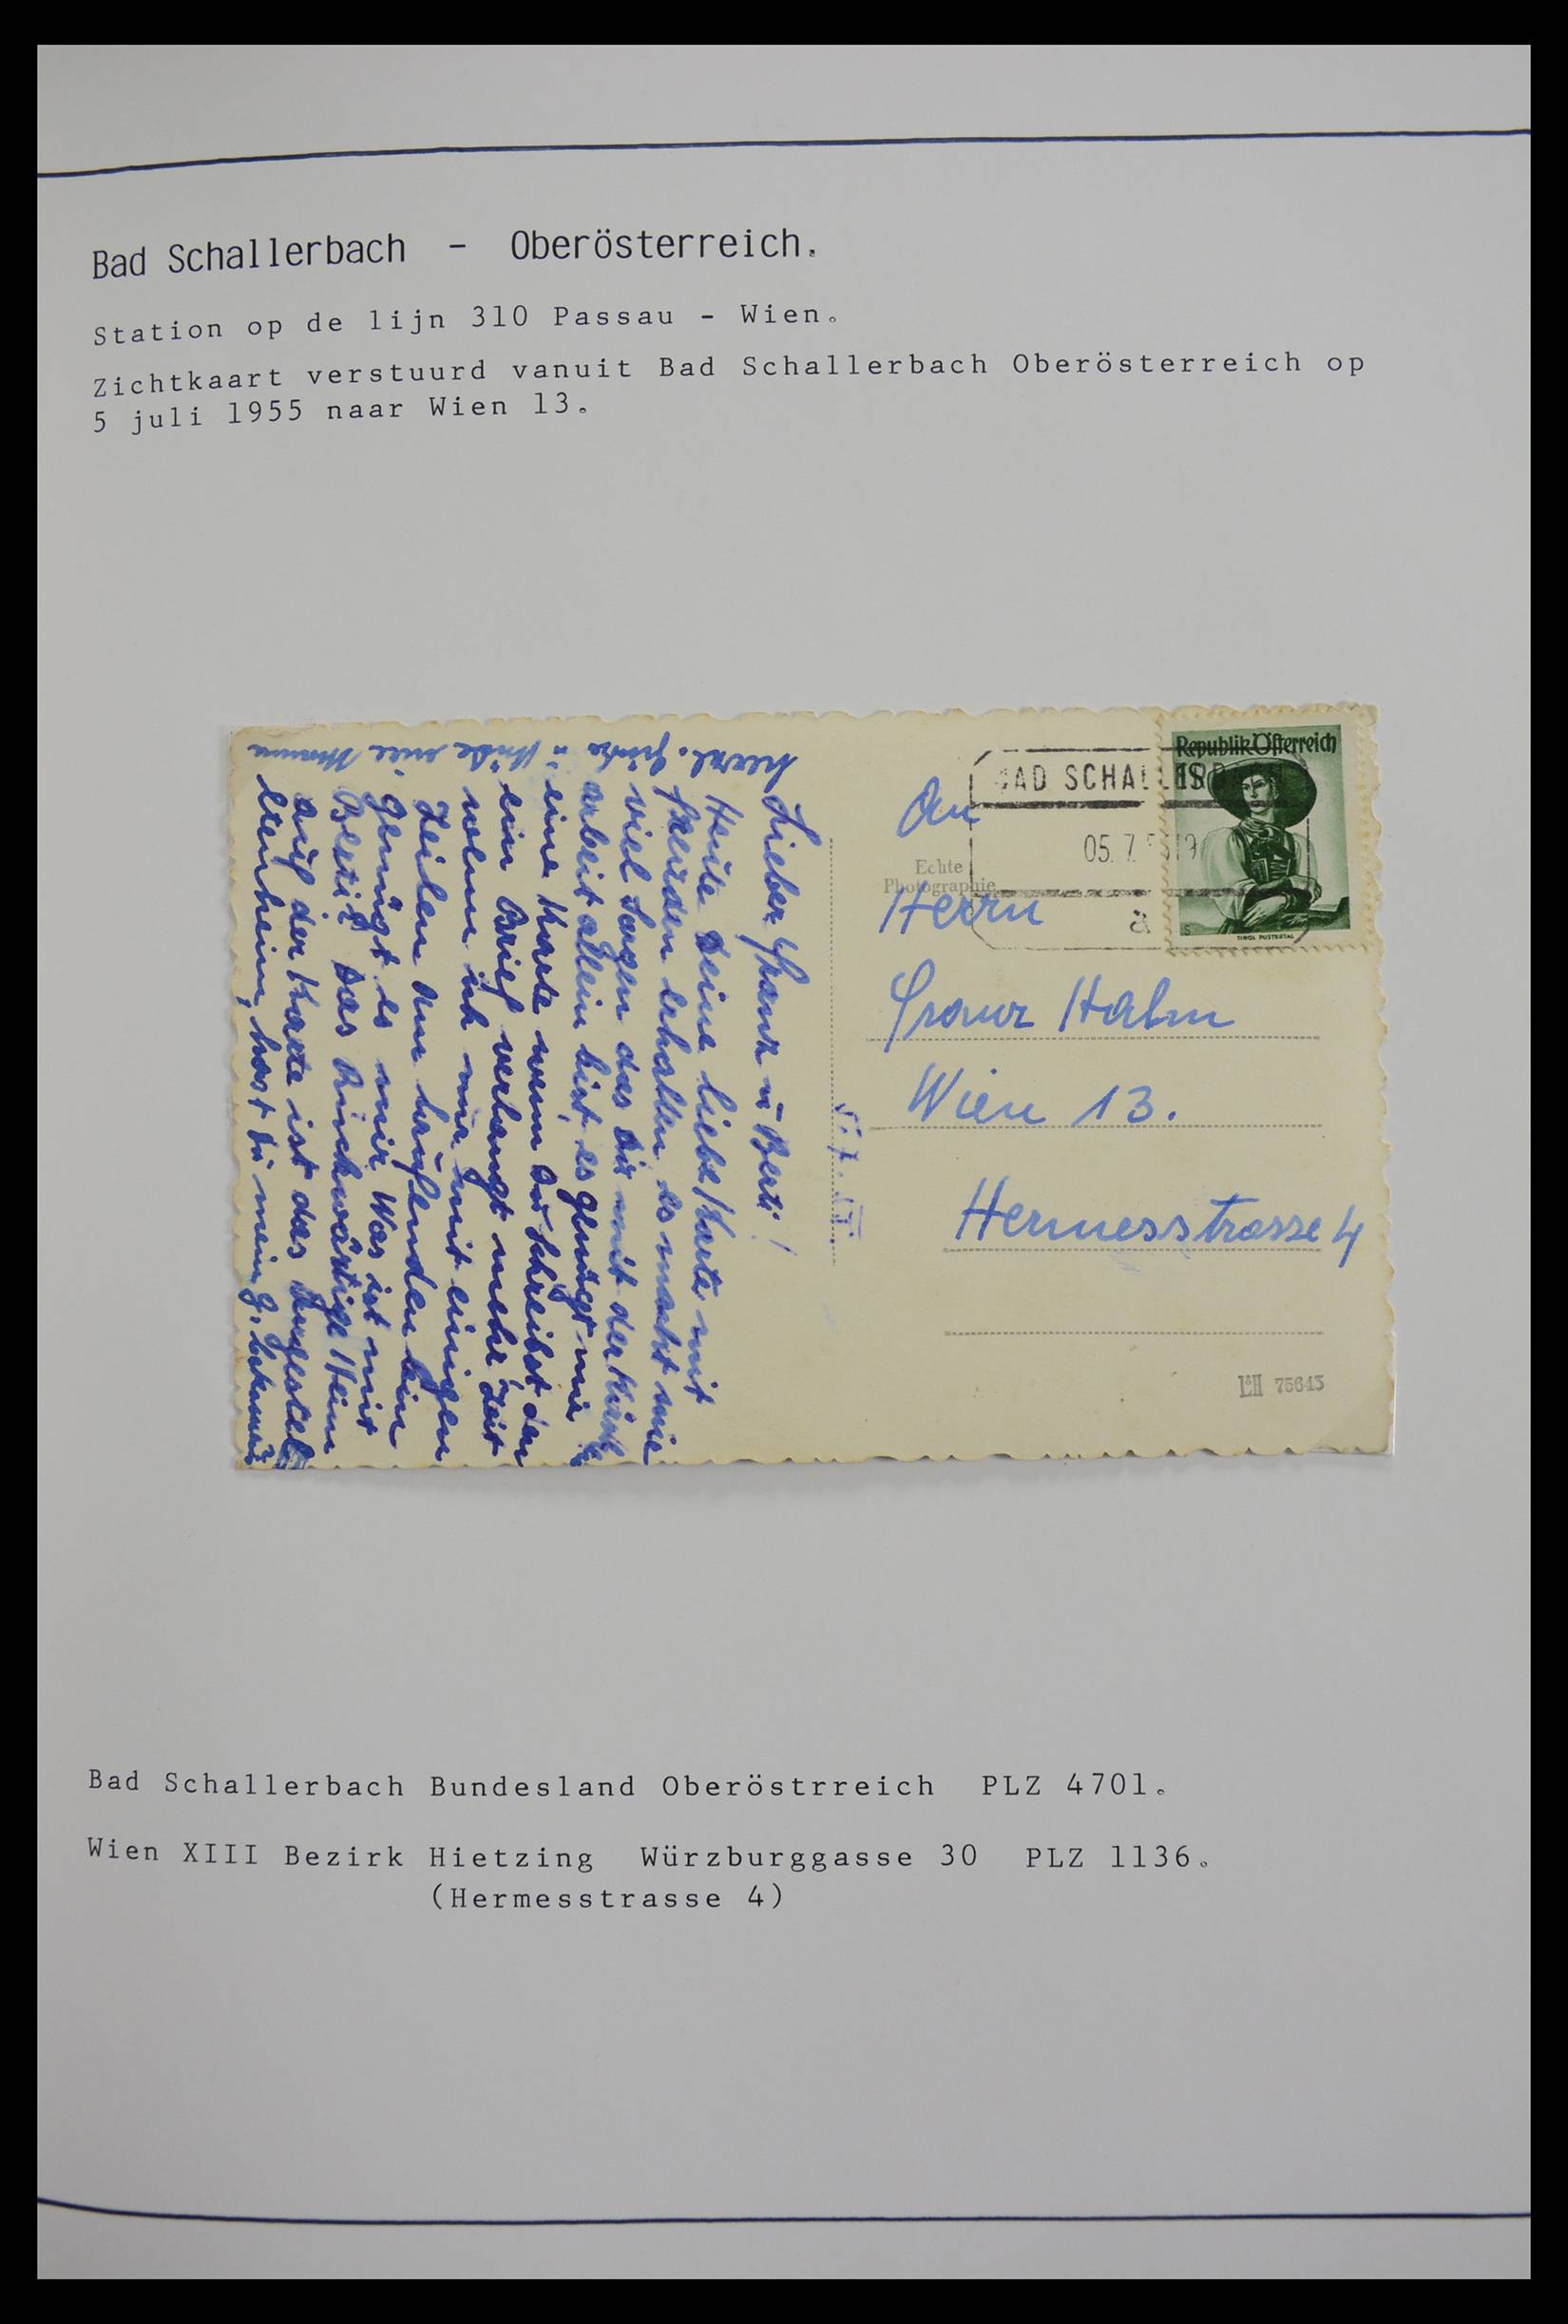 Bad Schallerbach - Oberösterreich.
Station op de lijn 310 Passau - Wien.
Zichtkaart verstuurd vanuit Bad Schallerbach Oberösterreich op
5 juli 1955 naar Wien 13.
herzl. Grüße u Küße eure Mamma
Lieber Franz u Berti!
Heute deine liebe Karte mit
Freuden erhalten es macht mir
viel Sorgen das du mit der
arbeit allein bist, es genügt mir
eine Karte wenn du schreibst den
ein Brief verlangt mehr Zeit
wenn ich nur mit einigen
Zeilen am laufenden bin
genügt es mir Was ist mit
Berti? Das Rückwärtige Heim
auf der Karte ist das
hast du mein
BAD SCHALLERB
05. 7. 5 19
a
Republik Österreich
TIROL PUSTERTAL
An
Echte
Photographie
Herrn
Franz Halm
Wien 13.
Hermesstrasse 4
75643
Bad Schallerbach Bundesland Oberöstrreich PLZ 4701.
Wien XIII Bezirk Hietzing Würzburggasse 30 PLZ 1136.
(Hermesstrasse 4)